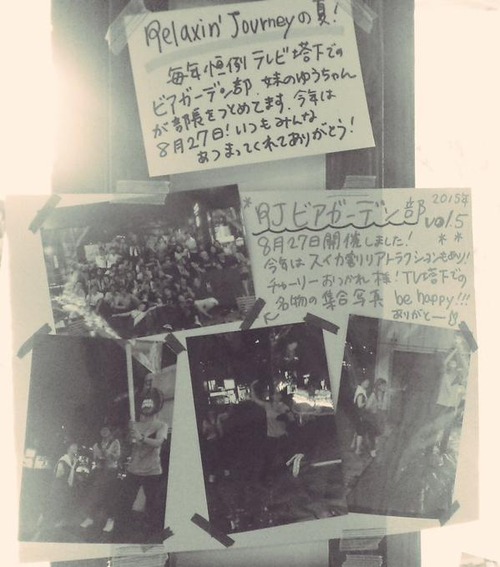 Relaxin' Journeyの夏!
毎年恒例テレビ塔下での
ビアガーデン部、妹のゆうちゃん
が部長をつとめてます。今年は
8月27日!いつもみんな
あつまってくれてありがとう!
2015年
RJビアガーデン部 vol.5
8月27日開催しました!
今年はスイカ割りアトラクションもあり!
チャーリーおつかれ様!TV塔下での
名物の集合写真 be happy!!!
ありがとー